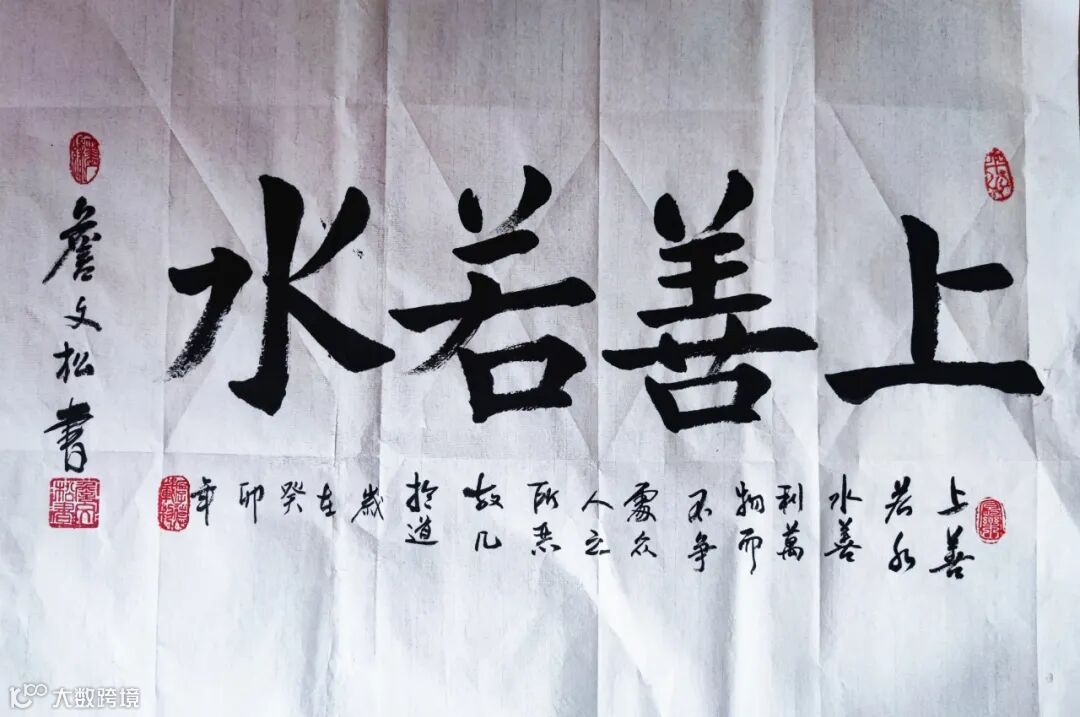 上善若水
上善
若水
水善
利萬
物而
不争
處众
人之
所恶
故几
於道
歲
在
癸
卯
年
詹文松書
大数跨境